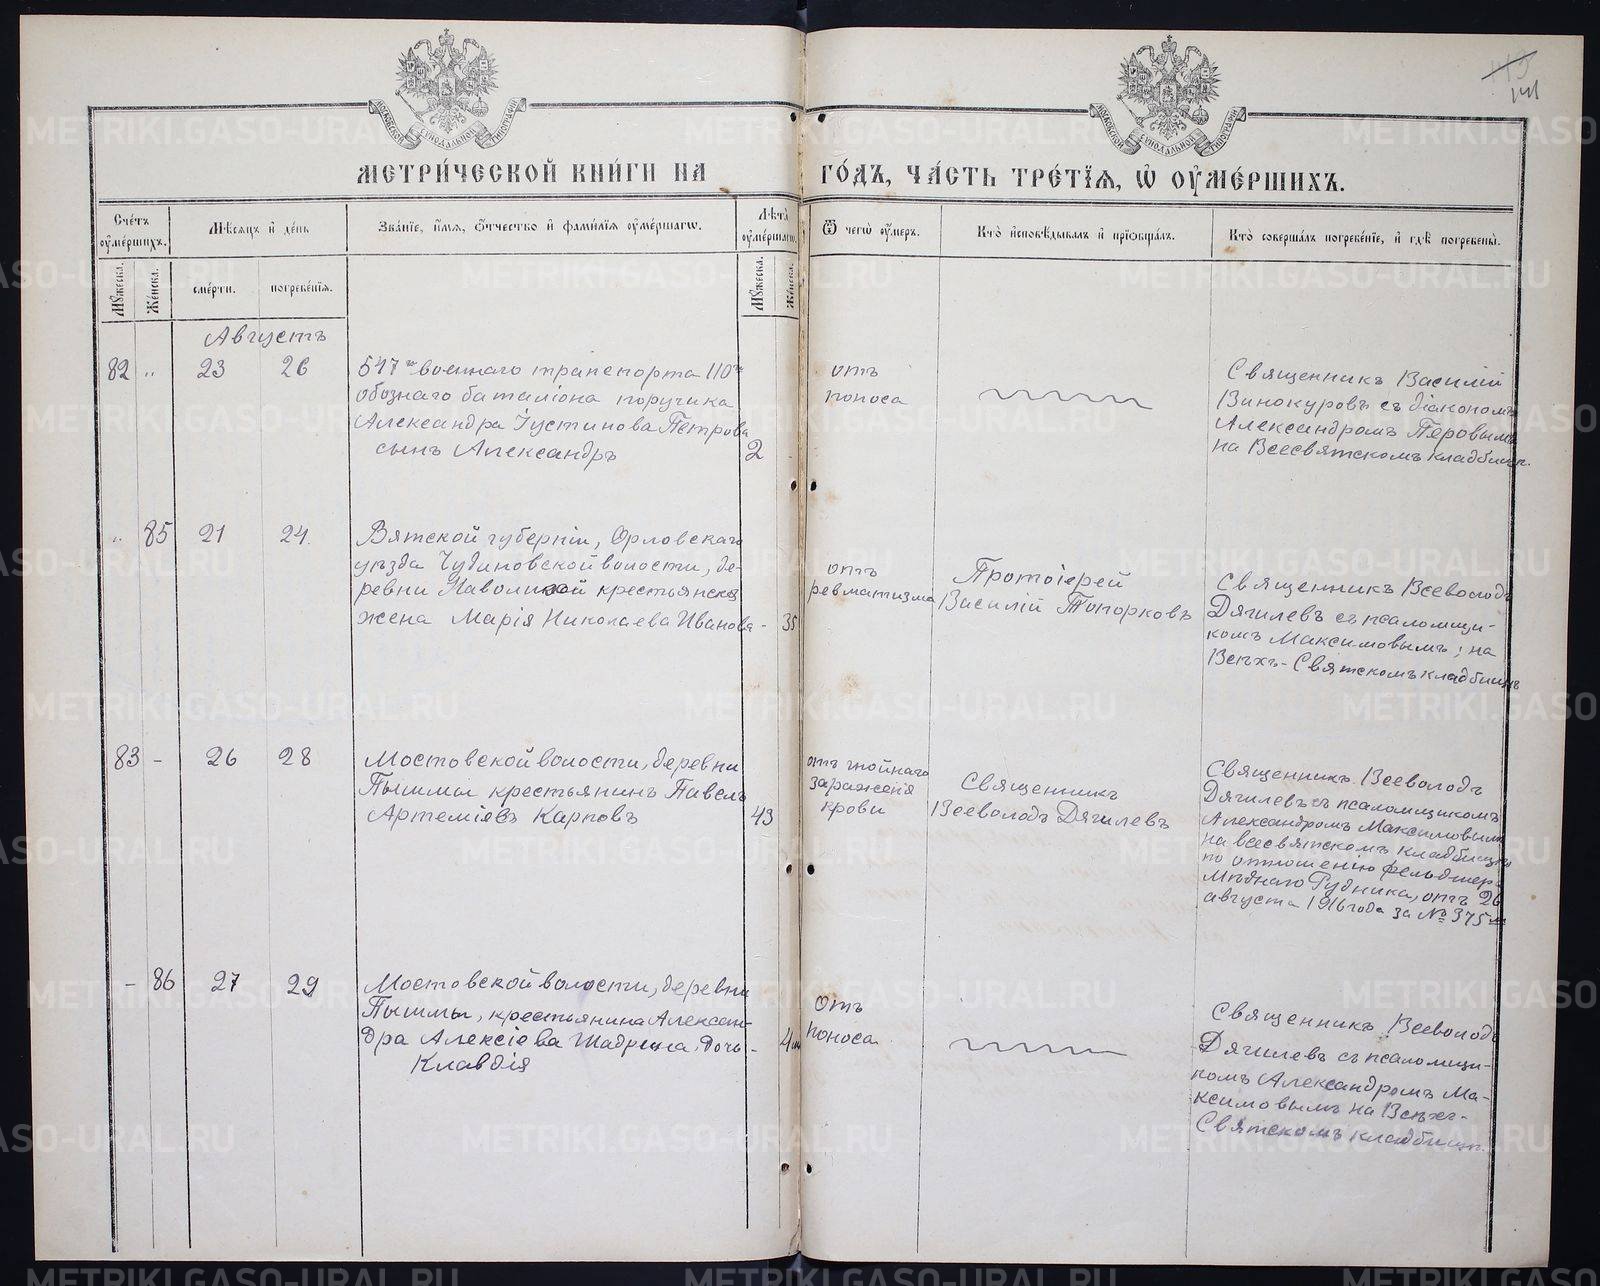 МОСКОВСКОЙ СѴНОДАЛЬНОЙ ТИПОГРАФІИ
МОСКОВСКОЙ СѴНОДАЛЬНОЙ ТИПОГРАФІИ
141
МЕТРИ́ЧЕСКОЙ КНИ́ГИ НА ГО́ДЪ, ЧА́СТЬ ТРЕ́ТЇѦ, Ѡ ОУ҆МЕ́РШИХЪ.
Сче́тъ оу҆ме́ршихъ.
Мѣ́сяцъ и҆ де́нь
Зва́нїе, и҆́мя, ѻ҆́тчество и҆ фами́лїя оу҆ме́ршагѡ.
Лѣ́та оу҆ме́ршагѡ.
Ѿ чегѡ̀ оу҆́меръ.
Кто̀ и҆сповѣ́дывалъ и҆ прїѻбща́лъ.
Кто̀ соверша́лъ погребе́нїе, и҆ гдѣ̀ погребены̀.
Мꙋ́жеска.
Же́нска.
сме́рти.
погребе́нїя.
Мꙋ́жеска.
Же́нска.
Августъ
82 „ 23 26
517го военнаго транспорта 110го
обознаго баталіона поручика
Александра Іустинова Петрова
сынъ Александръ
2
отъ
поноса
Священникъ Василій
Винокуровъ съ діакономъ
Александромъ Перовымъ
на Всесвятскомъ кладбищѣ.
„ 85 21 24.
Вятской губерніи, Орловскаго
уѣзда Чудиновской волости, де-
ревни крестьянская
жена Марія Николаева Иванова
- 35
отъ
ревматизма
Протоіерей
Василій Топорковъ
Священникъ Всеволодъ
Дягилевъ съ псаломщи-
комъ Максимовымъ; на
Всѣхъ-Святскомъ кладбищѣ
83 - 26 28
Мостовской волости, деревни
Пышмы крестьянинъ Павелъ
Артеміевъ Карповъ
43
отъ гнойнаго
зараженія
крови
Священникъ
Всеволодъ Дягилевъ
Священникъ Всеволодъ
Дягилевъ съ псаломщикомъ
Александромъ Максимовымъ
на всесвятскомъ кладбищѣ
по отношенію фельдшера
Мѣднаго Рудника, отъ 26
августа 1916 года за № 375м
- 86 27 29
Мостовской волости, деревни
Пышмы, крестьянина Алексан-
дра Алексіева Шадрина дочь
Клавдія
- 4м
отъ
поноса
Священникъ Всеволодъ
Дягилевъ съ псаломщи-
комъ Александромъ Ма-
ксимовымъ на Всѣхъ-
Святскомъ кладбищѣ.
METRIKI.GASO-URAL.RU